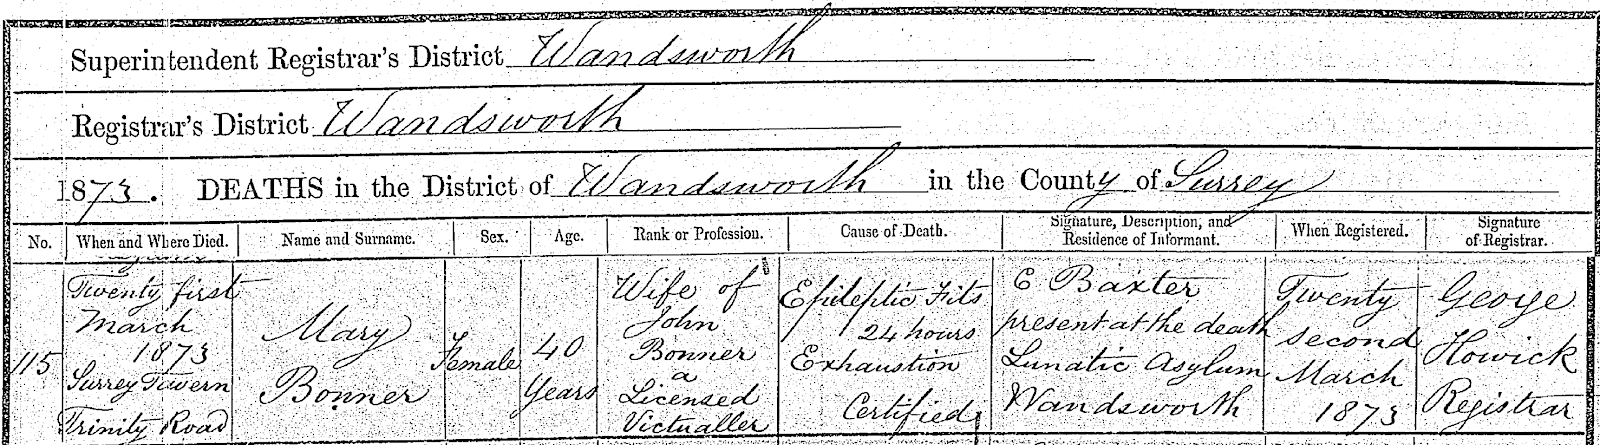 Superintendent Registrar's District Wandsworth
Registrar's District Wandsworth
1873. DEATHS in the District of Wandsworth in the County of Surrey
No.
When and Where Died.
Name and Surname.
Sex.
Age.
Rank or Profession.
Cause of Death.
Signature, Description, and
Residence of Informant.
When Registered.
Signature
of Registrar.
115
Twenty first
March
1873
Surrey Tavern
Trinity Road
Mary
Bonner
Female
40
Years
Wife of
John
Bonner
a
Licensed
Victualler
Epileptic Fits
24 hours
Exhaustion
Certified
E Baxter
present at the death
Lunatic Asylum
Wandsworth
Twenty
second
March
1873
George
Howick
Registrar